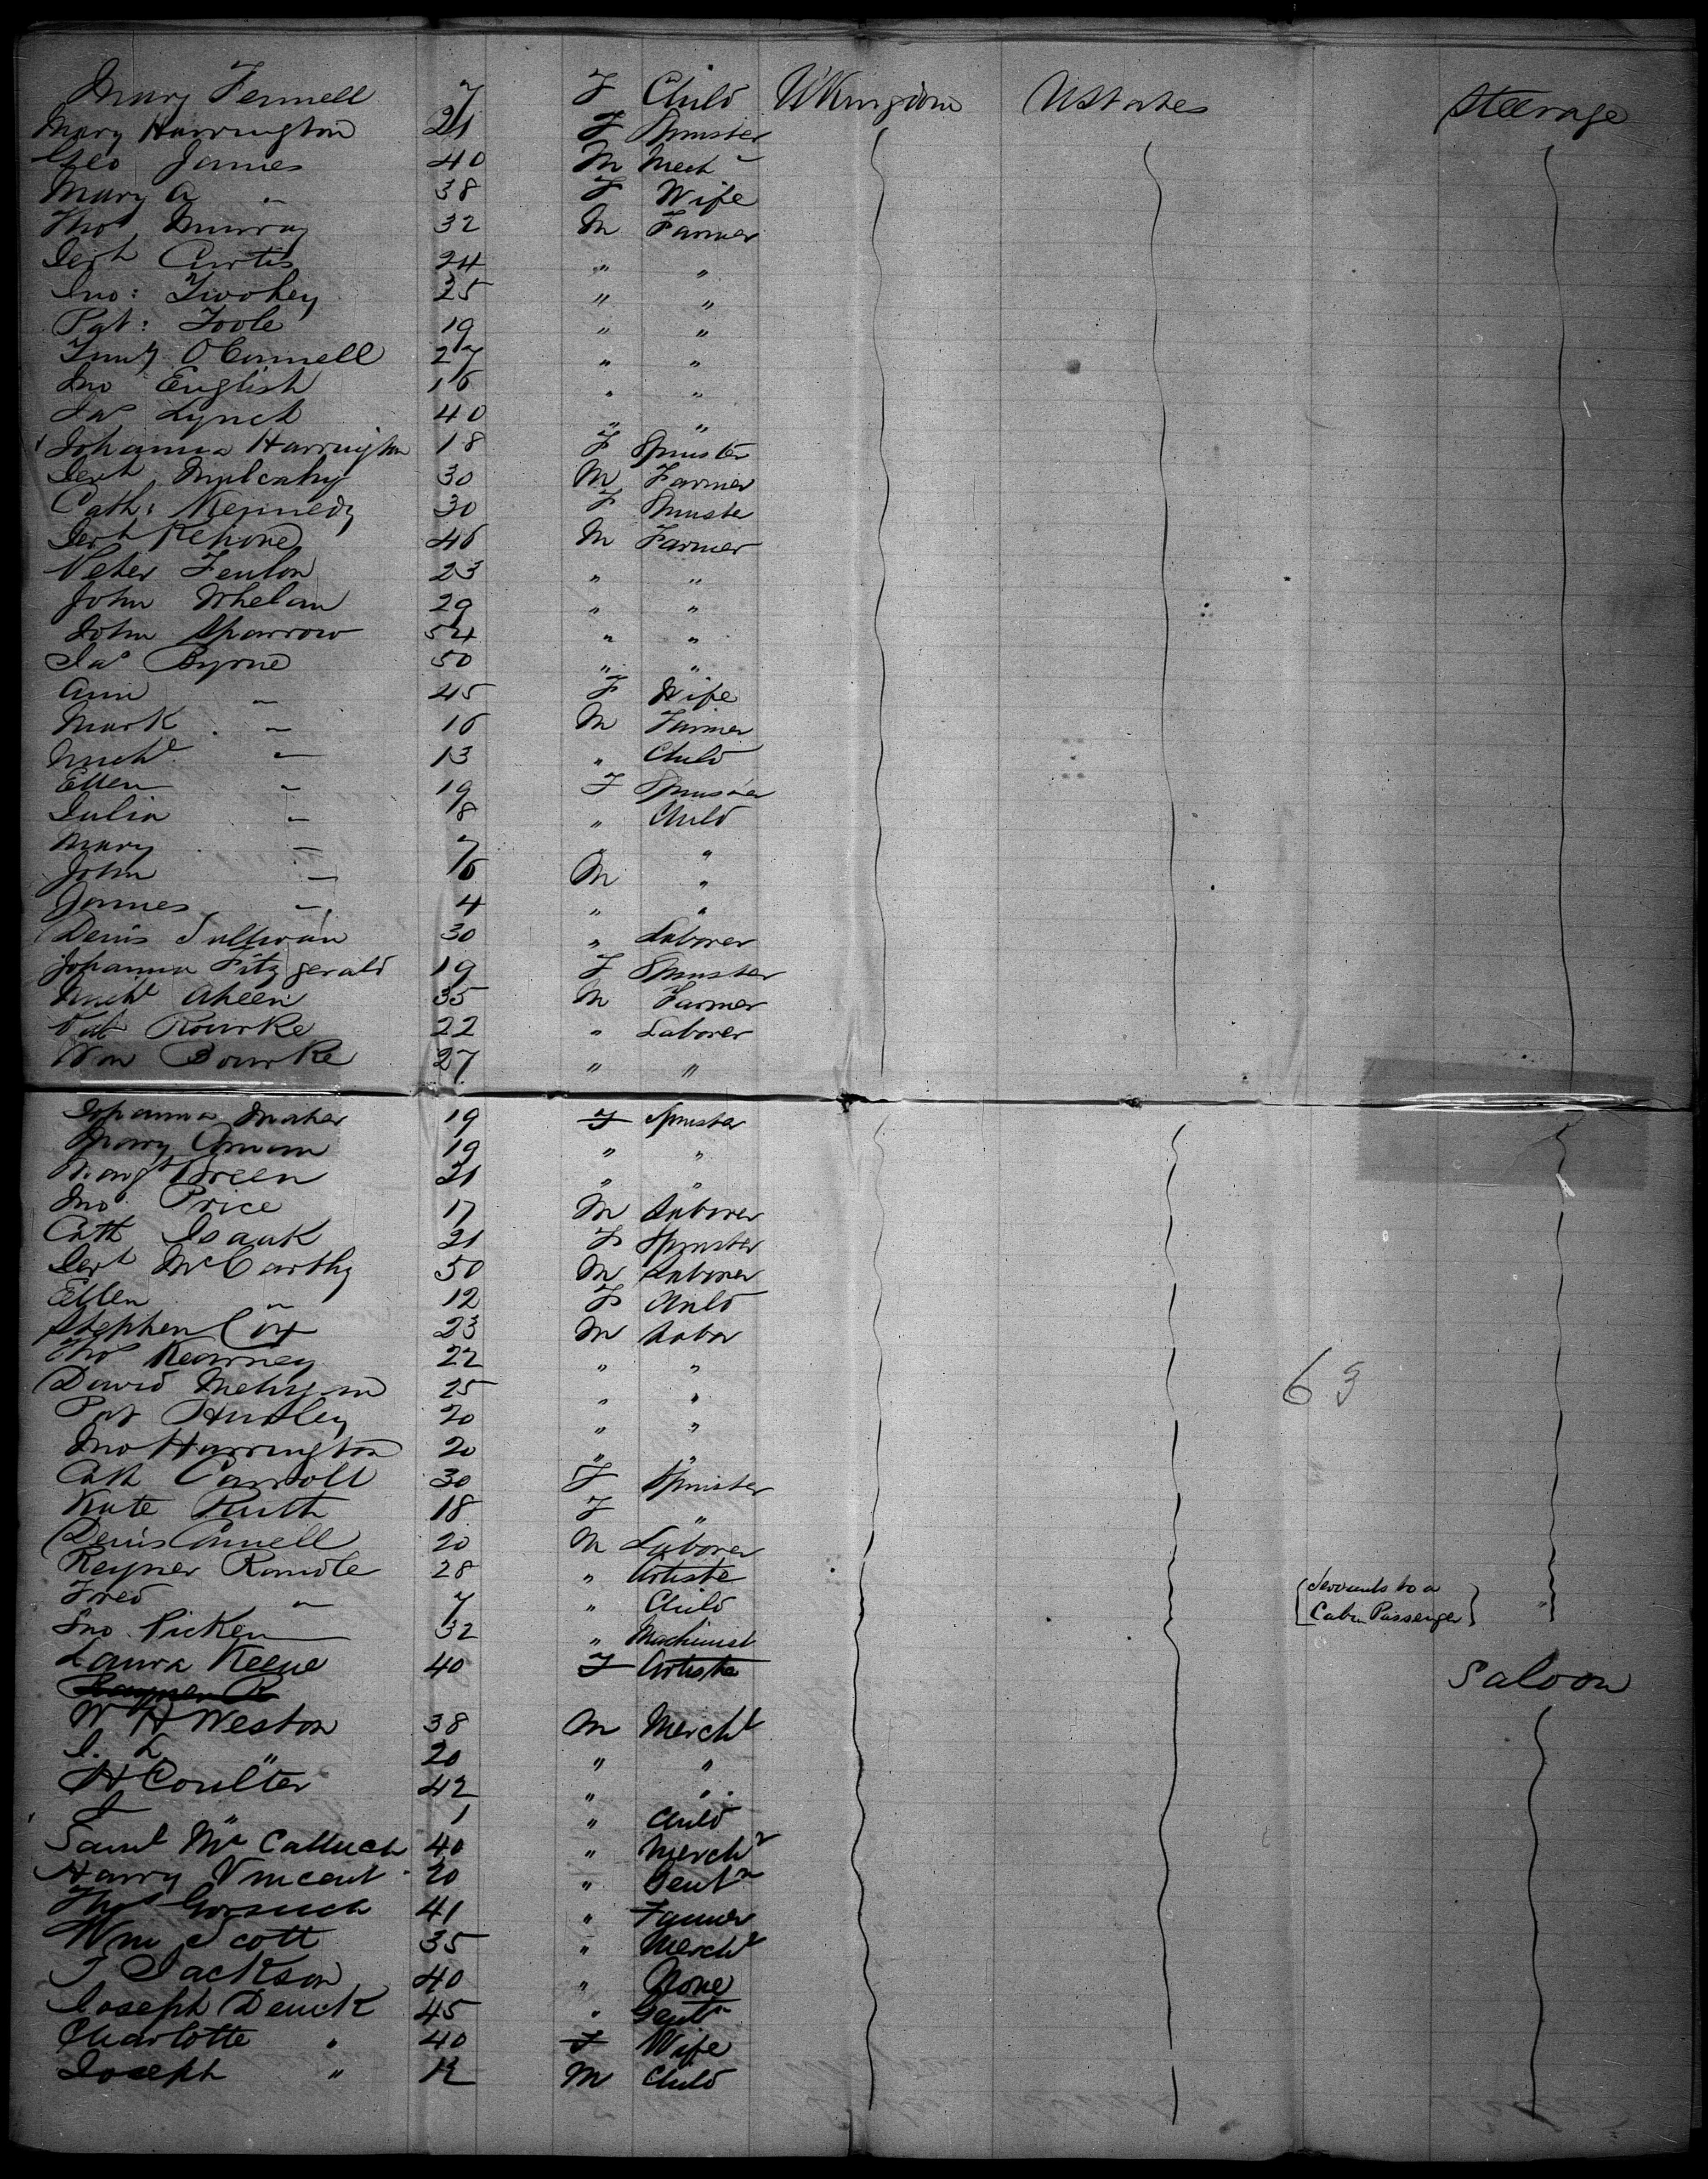 Mary Fennell 7 F Child UKingdom UStates Steerage
Mary Harrington 21 F Spinster
Geo James 40 M Mech
Mary A " 38 F Wife
Thos Murray 32 M Farmer
Jerh Curtis 24 " "
Jno: Twohey 25 " "
Pat: Toole 19 " "
Timy OConnell 27 " "
Jno English 16 " "
Jas Lynch 40 " "
Johanna Harrington 18 F Spinster
Jerh Mulcahy 30 M Farmer
Cath: Kennedy 30 F Spinster
Jerh Kehone 46 M Farmer
Peter Fenlon 23 " "
John Whelan 29 " "
John Sparrow 54 " "
Jas Byrne 50 " "
Ann " 45 F Wife
Mark " 16 M Farmer
Michl " 13 " Child
Ellen " 19 F Spinster
Julia " 8 " Child
Mary " 7 " "
John " 6 M "
James " 4 " "
Denis Sullivan 30 " Laborer
Johanna Fitzgerald 19 F Spinster
Michl Aheen 35 M Farmer
Pat Rourke 22 " Laborer
Wm Bourke 27 " "
Johanna Maher 19 F Spinster
Mary 19 " "
Margt Breen 21 " "
Jno Price 17 M Laborer
Cath Isaak 21 F Spinster
Jerh McCarthy 50 M Laborer
Ellen " 12 F Child
Stephen Cox 23 M Labor
Thos Kearney 22 " "
David 25 " "
Pat Hurley 20 " "
Jno Harrington 20 " "
Cath Carroll 30 F Spinster
Kate Ruth 18 F "
Denis Connell 20 M Laborer
Reyner Randle 28 " Artiste
Fred " 7 " Child
Jno Picken 32 " Machinist
63
Servants to a
Cabin Passenger
Laura Keene 40 F Artiste Saloon
W H Weston 38 M Mercht
J. L " 20 " "
H Coulter 42 " "
J " 1 " Child
Saml McCalluch 40 " Mercht
Harry Vincent 20 " Gentn
Thos Gorsuch 41 " Farmer
Wm Scott 35 " Mercht
T Jackson 40 " None
Joseph Denck 45 " Gentn
Charlotte " 40 F Wife
Joseph " 12 M Child